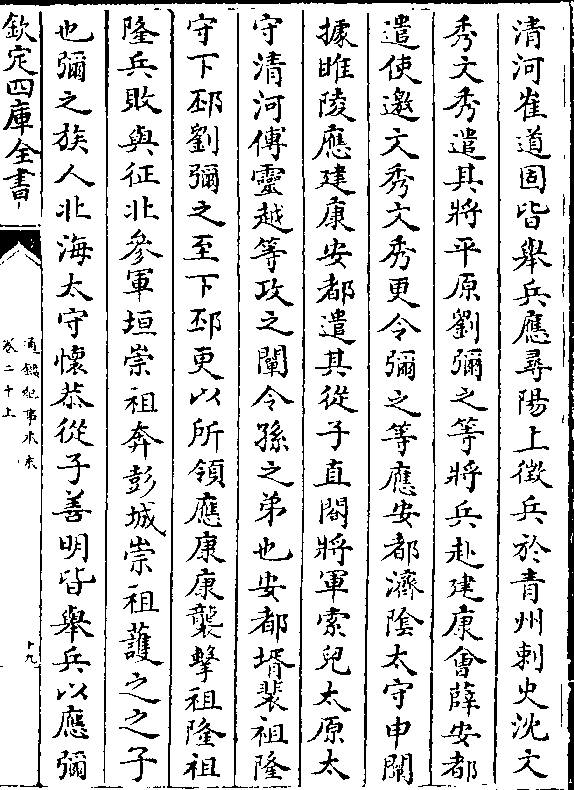 清河崔道固皆舉兵應尋陽上徵兵於青州刺史沈文
秀文秀遣其將平原劉彌之等將兵赴建康會薛安都
遣使邀文秀文秀更令彌之等應安都濟陰太守申闡
據睢陵應建康安都遣其從子直閤將軍索兒太原太
守清河傅靈越等攻之闡令孫之弟也安都壻裴祖隆
守下邳劉彌之至下邳更以所領應康康襲擊祖隆祖
隆兵敗與征北參軍垣崇祖奔彭城崇祖護之之子
也彌之族人北海太守懷恭從子善明皆舉兵以應彌
欽定四庫全書
通鑑紀事本末
卷二十上
十九